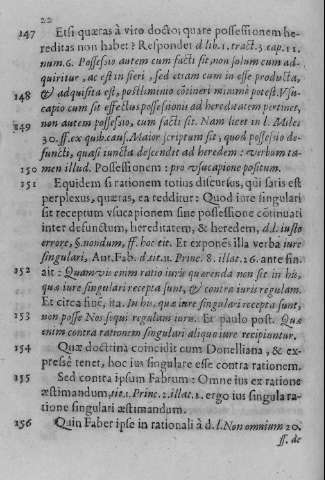 22
147 Etsi quæras à viro docto; quare possessionem he-
reditas non habet? Respondet d. lib. 1. tract. 3. cap. 11.
num. 6. Possessio autem cum facti sit non solum cum ad-
quiritur, ac est in fieri, sed etiam cum in esse producta,
148 & adquisita est, postliminio cōtineri minimè potest. Vsu-
capio cum sit effectus possessionis ad hereditatem pertinet,
149 non autem possessio, cum facti sit. Nam licet in l. Miles
30. ff. ex quib. caus. Maior scriptum sit, quod possessio de-
functi, quasi iuncta descendit ad heredem: verbum ta-
150 men illud. Possessionem: pro vsucapione positum.
151 Equidem si rationem totius discursus, qui satis est
perplexus, quæras, ea redditur: Quod iure singulari
sit receptum vsucapionem sine possessione cōtinuati
inter defunctum, hereditatem, & heredem, d. l. iusto
errore, §. nondum, ff. hoc tit. Et exponēs illa verba iure
singulari, Ant. Fab. d. tit. 11. Princ. 8. illat. 26. ante fin.
152 ait: Quamvis enim ratio iuris quærenda non sit in his,
quæ iure singulari recepta sunt, & contra iuris regulam.
Et circa finē, ita. In his, quæ iure singulari recepta sunt,
153 non posse Nos sequi regulam iuris. Et paulo post. Quæ
enim contra rationem singulari aliquo iure recipiuntur.
154 Quæ doctrina coincidit cum Donelliana, & ex-
pressè tenet, hoc ius singulare esse contra rationem.
155 Sed contra ipsum Fabrum: Omne ius ex ratione
æstimandum, tit. 1. Princ. 2. illat. 1. ergo ius singula ra-
tione singulari æstimandum.
156 Quin Faber ipse in rationali à d. l. Non omnium 20.
ff. de